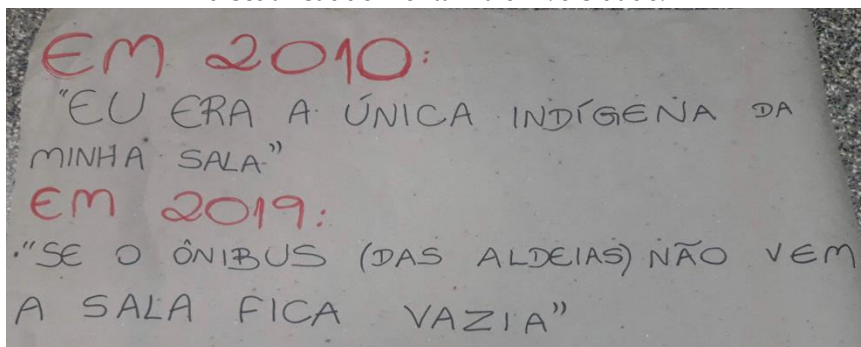 EM 2010:
"EU ERA A ÚNICA INDÍGENA DA
MINHA SALA."
EM 2019:
"SE O ÔNIBUS (DAS ALDEIAS) NÃO VEM
A SALA FICA VAZIA"